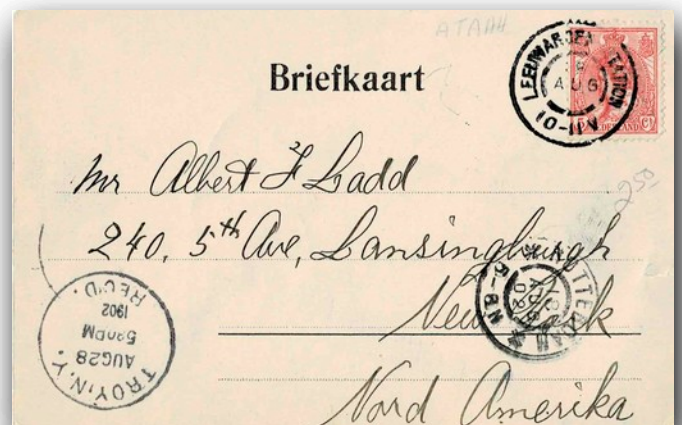 ATAAH
Briefkaart
LEEUWARDEN STATION
AUG
10-11V
NEDERLAND
2.50
Mr Albert F Ladd
240, 5th Ave, Lansingburgh
New York
Nord Amerika
ROTTERDAM
AUG
02
8-9N
TROY, N.Y.
AUG 28
530PM
1902
REC'D.